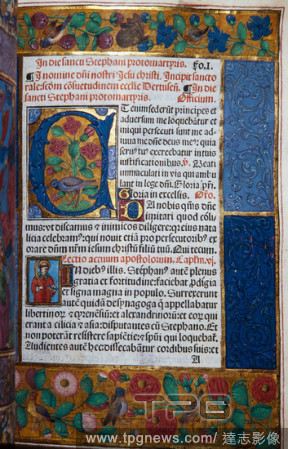 In die sancti Stephani protomartyris. fo.1.
In nomine dñi nostri Jesu christi. Incipit sancto
rale scdm cõsuetudinem ecclie Dertusen. In die
sancti Stephani protomartyris. Officium.
Et enim sederũt principes et
adversum me loquebãtur et
iniqui persecuti sunt me ad
iuva me dñe deus me⁹: quia
serv⁹ tu⁹ exercebatur in tuis
iustificationibus. v. Beati
immaculati in via qui ambu
lant in lege dñi. Gloria pr̃i.
Gloria in excelsis. Oro.
Da nobis qũs dñe
imitari quod coli
mus: ut discamus & inimicos diligere: q̃ eius nata
licia celebram⁹: qui novit etiã pro persecutorib⁹ ex
orare dñm nr̃m iesum christũ filiũ tuũ. Qui tecum.
Lectio actuum apostolorum. Cap̃m. vj.
In dieb⁹ illis. Stephan⁹ autẽ plenus
gratia et fortitudine: faciebat p̃digia
et signa magna in populo. Surrexerunt
autẽ quidã de synagoga q̃ appellabatur
libertinor̃ et cyrenẽsiũ et alexandrinor̃ et eor̃ qui
erant a cilicia & asia: disputantes cũ Stephano. Et
non poterãt resistere sapiẽtie & sp̃ui qui loquebat̃.
Audientes autẽ hec: dissecabãtur cordibus suis: et
A
TPG
www.tpgnews.com/ 達志影像